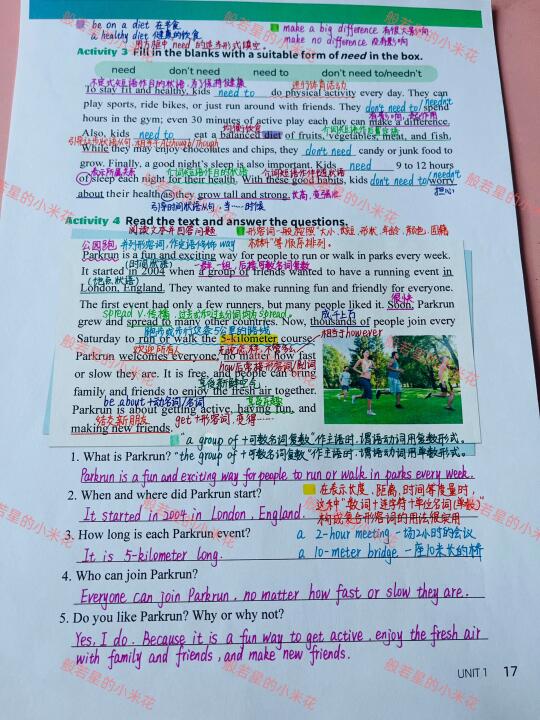 be on a diet 在节食
a healthy diet 健康的饮食
make a big difference 有很大影响
make no difference 没有影响
用方框中 need 的适当形式填空。
Activity 3 Fill in the blanks with a suitable form of need in the box.
need don't need need to don't need to/needn't
不定式短语作目的状语,为了保持健康
进行体育活动
To stay fit and healthy, kids need to do physical activity every day. They can
play sports, ride bikes, or just run around with friends. They don't need to/needn't spend
hours in the gym; even 30 minutes of active play each day can make a difference.
均衡饮食
Also, kids need to eat a balanced diet of fruits, vegetables, meat, and fish.
While they may enjoy chocolates and chips, they don't need candy or junk food to
grow. Finally, a good night's sleep is also important. Kids need 9 to 12 hours
表示所属关系
of sleep each night for their health. With these good habits, kids don't need to/needn't worry
担心
about their health as they grow tall and strong. 长高,变强壮
引导时间状语从句,当……时候
Activity 4 Read the text and answer the questions.
阅读文章并回答问题
形容词一般按照"大小、形状、年龄、颜色、国籍
材料"等顺序排列。
公园跑 并列形容词,作定语修饰 way
Parkrun is a fun and exciting way for people to run or walk in parks every week.
(时间状语) 一群,一组,后接可数名词复数
It started in 2004 when a group of friends wanted to have a running event in
(地点状语)
London, England. They wanted to make running fun and friendly for everyone.
The first event had only a few runners, but many people liked it. Soon, Parkrun
很快
spread v. 传播,过去式和过去分词均为 spread。
成千上万
grew and spread to many other countries. Now, thousands of people join every
跑步或步行这条5公里的路线
相当于however
Saturday to run or walk the 5-kilometer course.
欢迎所有人
无论
Parkrun welcomes everyone, no matter how fast
how后常接形容词/副词
or slow they are. It is free, and people can bring
享受新鲜空气
family and friends to enjoy the fresh air together.
be about +动名词/名词
享受乐趣
Parkrun is about getting active, having fun, and
making new friends.
结交新朋友
get +形容词,变得……
"a group of +可数名词复数"作主语时,谓语动词用复数形式。
"the group of +可数名词复数"作主语时,谓语动词用单数形式。
1. What is Parkrun?
Parkrun is a fun and exciting way for people to run or walk in parks every week.
2. When and where did Parkrun start?
It started in 2004 in London, England.
在表示长度、距离、时间等度量时,
这种"数词+连字符+单位名词(单数)"
构成复合形容词的用法很常用
3. How long is each Parkrun event?
a 2-hour meeting 一场2小时的会议
It is 5-kilometer long.
a 10-meter bridge 一座10米长的桥
4. Who can join Parkrun?
Everyone can join Parkrun, no matter how fast or slow they are.
5. Do you like Parkrun? Why or why not?
Yes, I do. Because it is a fun way to get active, enjoy the fresh air
with family and friends, and make new friends.
UNIT 1 17
般若星的小米花